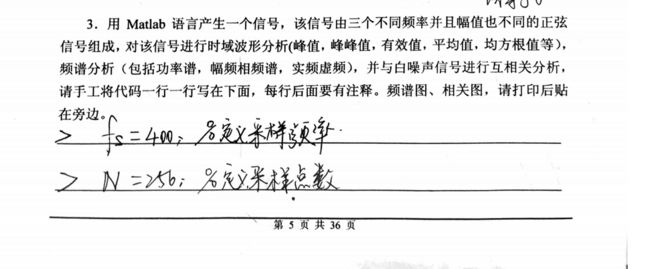 3．用 Matlab 语言产生一个信号，该信号由三个不同频率并且幅值也不同的正弦
信号组成，对该信号进行时域波形分析(峰值，峰峰值，有效值，平均值，均方根值等)，
频谱分析（包括功率谱，幅频相频谱，实频虚频），并与白噪声信号进行互相关分析，
请手工将代码一行一行写在下面，每行后面要有注释。频谱图、相关图，请打印后贴
在旁边。
> fs=400; %定义采样频率.
> N=256; %定义采样点数
第 5 页 共 36 页